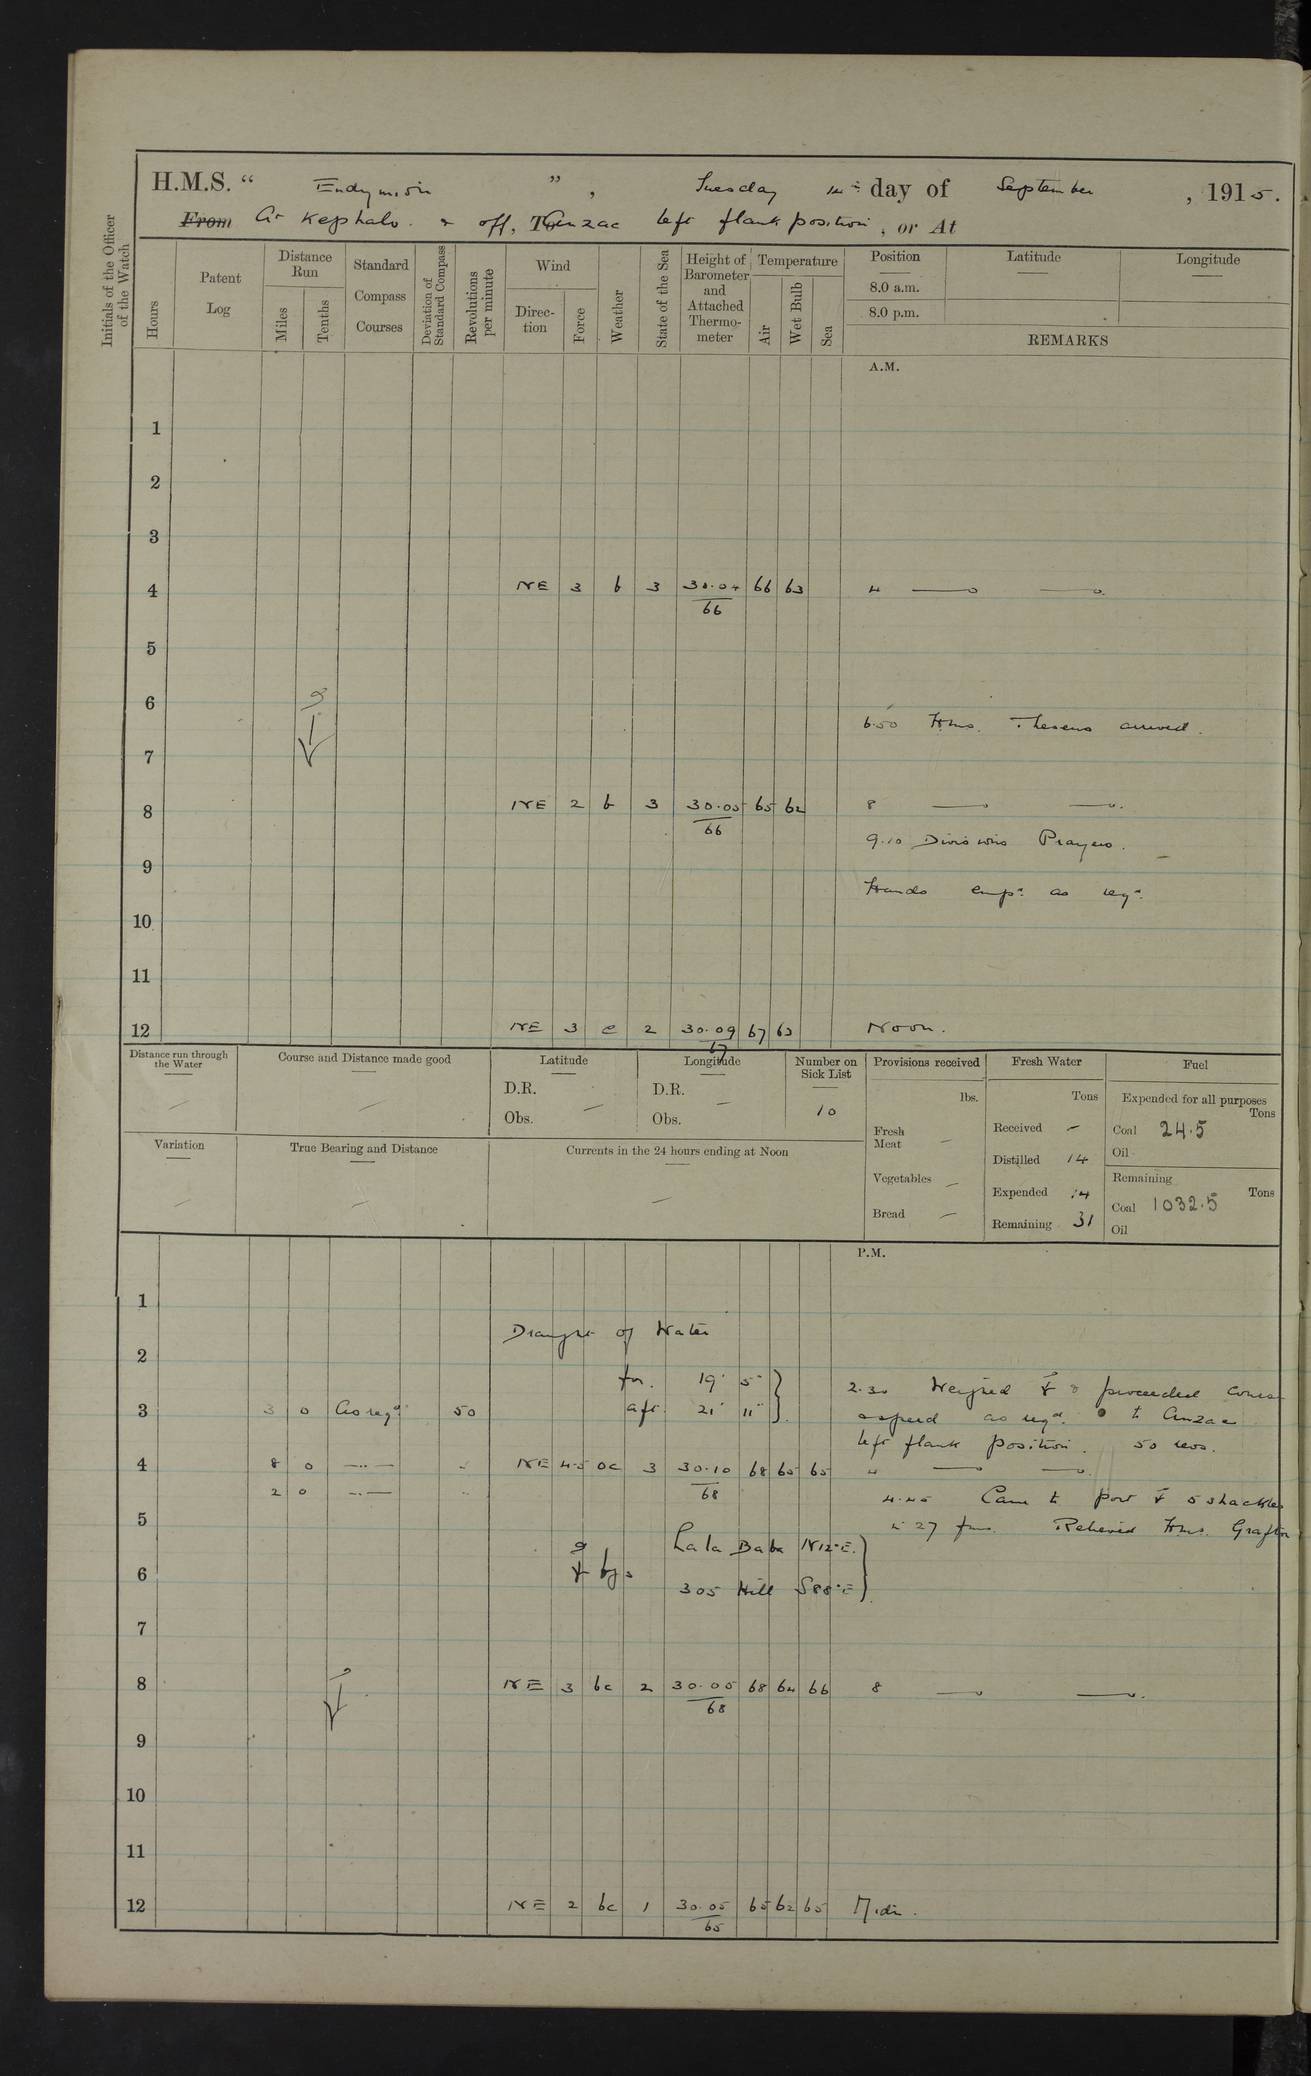 H.M.S. “ Endymion ” , Tuesday 14th day of September , 1915.
From At Kephalo. & off, Anzac left flank position , or At
Initials of the Officer of the Watch
Hours
Patent Log
Distance Run
Miles
Tenths
Standard Compass Courses
Deviation of Standard Compass
Revolutions per minute
Wind
Direction
Force
Weather
State of the Sea
Height of Barometer and Attached Thermometer
Temperature
Air
Wet Bulb
Sea
Position
8.0 a.m.
8.0 p.m.
Latitude
Longitude
REMARKS
A.M.
1
2
3
4 NE 3 b 3 30.04 66 63 4
66
5
6
6.50 H.M.S. Theseus arrived.
7
8 NE 2 b 3 30.05 65 62 8
66
9.10 Divisions Prayers.
9
Hands empd. as reqd.
10
11
12 NE 3 c 2 30.09 67 63 Noon.
67
Distance run through the Water
Course and Distance made good
Latitude
D.R.
Obs.
Longitude
D.R.
Obs.
Number on Sick List
10
Provisions received
lbs.
Fresh Meat —
Vegetables —
Bread —
Fresh Water
Tons
Received —
Distilled 14
Expended 14
Remaining 31
Fuel
Expended for all purposes
Tons
Coal 24.5
Oil
Remaining
Tons
Coal 1032.5
Oil
Variation
True Bearing and Distance
Currents in the 24 hours ending at Noon
P.M.
1
Draught of Water
2
for. 19' 5"
aft. 21' 11"
2.30 Weighed & proceeded Course
3 3 0 As reqd. 50
& speed as reqd. to Anzac
left flank position. 50 revs.
4 8 0 NE 4-5 oc 3 30.10 68 65 65 4
68
2 0
4.45 Came to port 5 shackles
5
in 27 fms. Relieved H.M.S. Grafton
Lala Baba N12°E.
6 bgs
305 Hill S88°E
7
8 NE 3 bc 2 30.05 68 64 66 8
68
9
10
11
12 NE 2 bc 1 30.05 65 62 65 Midt.
65